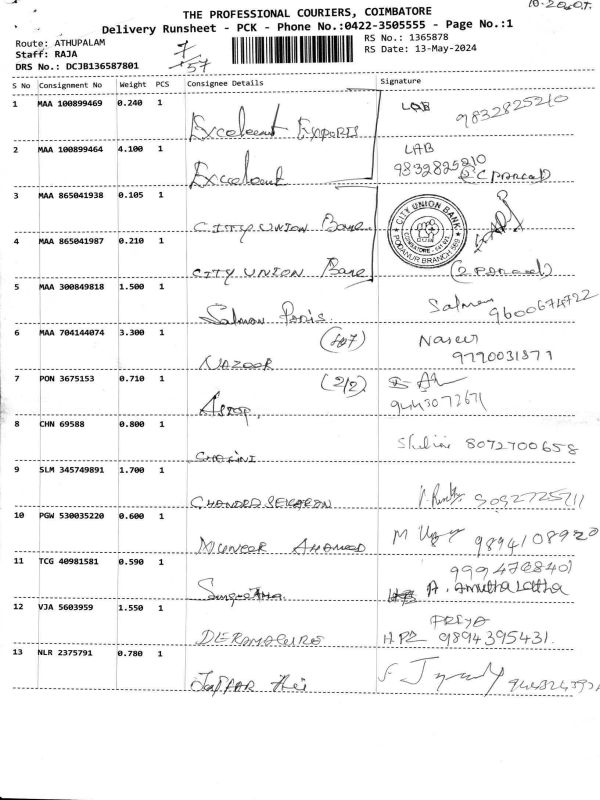 THE PROFESSIONAL COURIERS, COIMBATORE
Delivery Runsheet - PCK - Phone No.:0422-3505555 - Page No.:1
Route: ATHUPALAM
Staff: RAJA
DRS No.: DCJB136587801
RS No.: 1365878
RS Date: 13-May-2024
S No Consignment No Weight PCS Consignee Details Signature
1 MAA 100899469 0.240 1 Excellent Exports LAB 9832825210
2 MAA 100899464 4.100 1 Excellent LAB
9832825210
3 MAA 865041938 0.105 1 CITY UNION Bank
CITY UNION BANK
COIMBATORE - 641 023
PODANUR BRANCH
4 MAA 865041987 0.210 1 CITY UNION Bank
5 MAA 300849818 1.500 1 Salmon Paris. Salman
9600674722
6 MAA 704144074 3.300 1 NAZEER Naseer
9790031877
7 PON 3675153 0.710 1 (2/2)
9443072671
8 CHN 69588 0.800 1 SHALINI Shalini 8072700658
9 SLM 345749891 1.700 1 CHANDRASEKARAN 9092725711
10 PGW 530035220 0.600 1 MUNEER AHAMED M 9894108920
11 TCG 40981581 0.590 1 Sangeetha. 9994768401
A. Amutha Latha
12 VJA 5603959 1.550 1 PRIYA
9894395431.
13 NLR 2375791 0.780 1 JAFFAR Ali